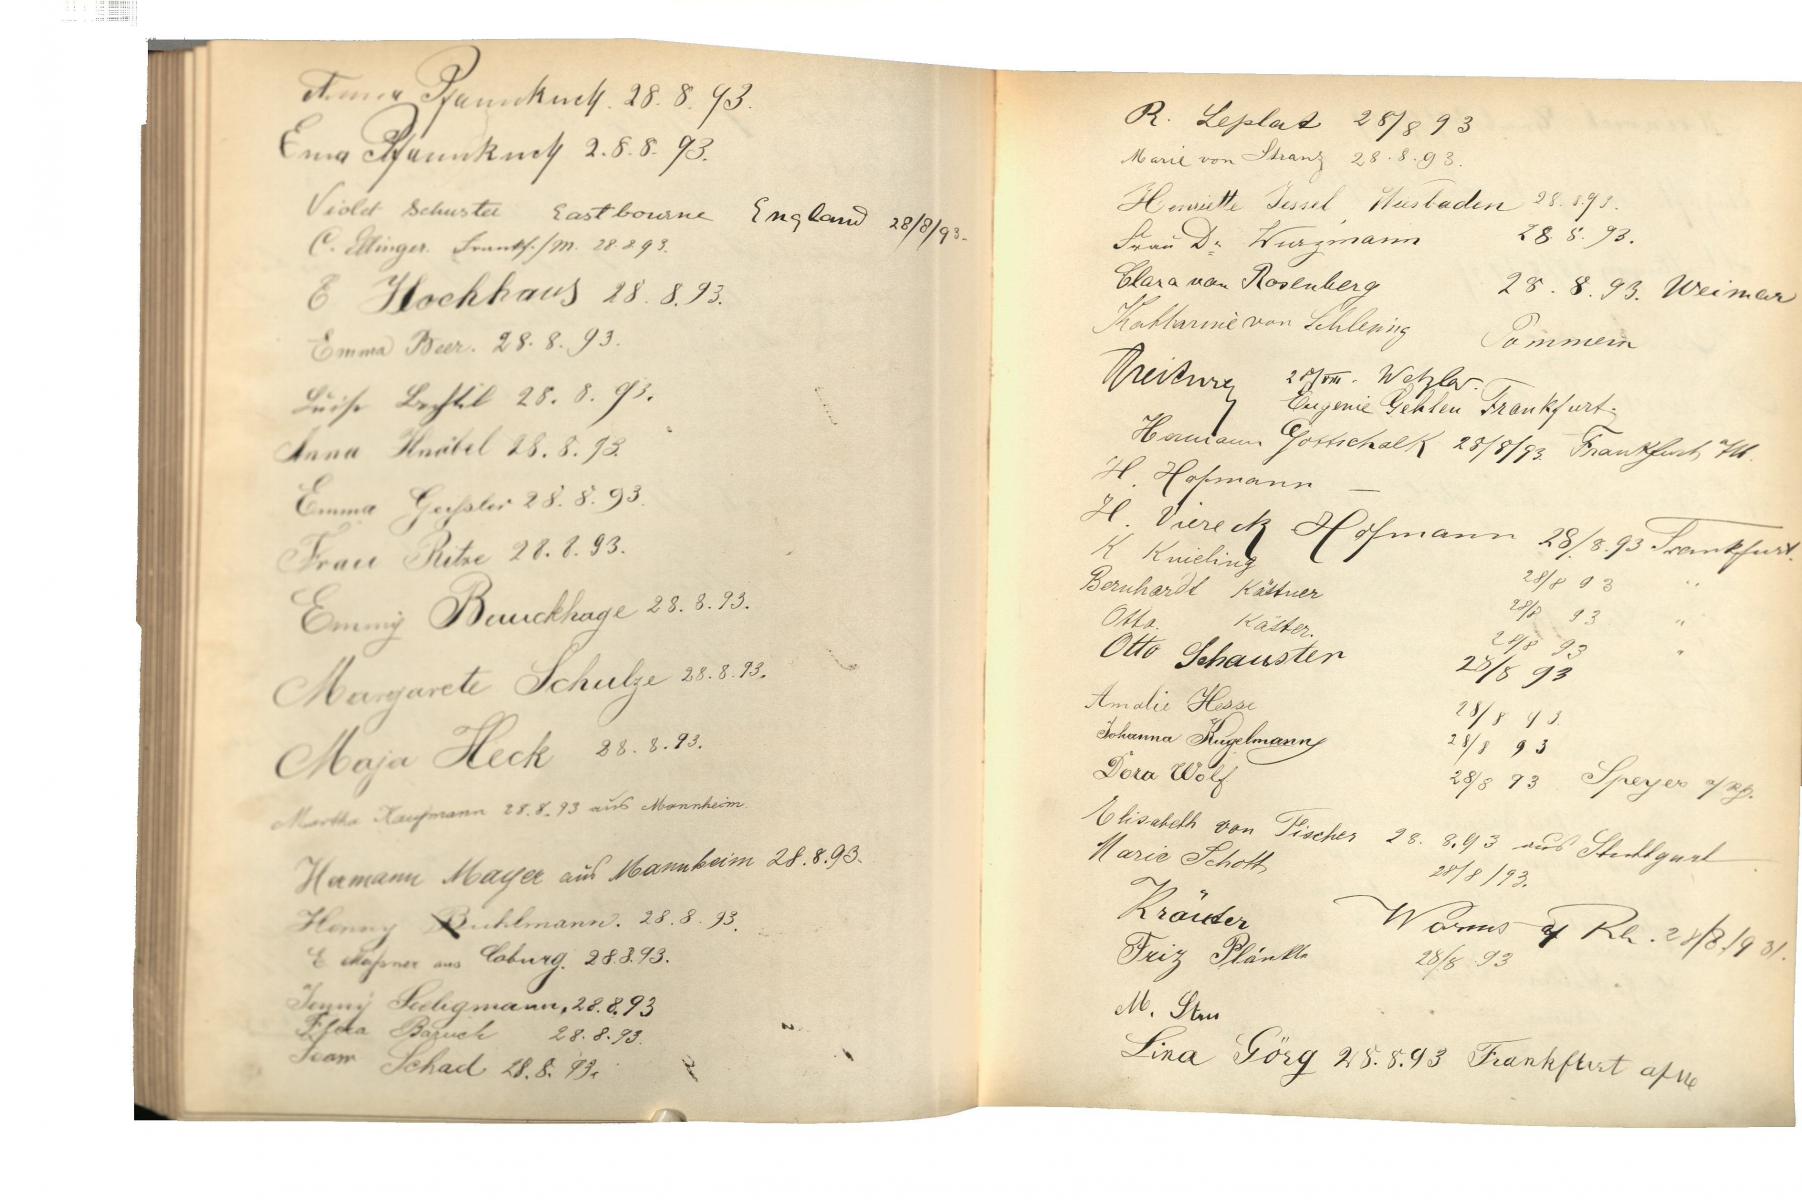 Anna Pfannkuch. 28. 8. 93.
Erna Pfannkuch 28. 8. 93.
Violet Schuster Eastbourne England 28/8/93.
C. Ettinger. Frankf./M. 28.8.93.
E Hochhaus 28. 8. 93.
Emma Beer. 28. 8. 93.
Luise Bechtel 28. 8. 93.
Anna Knäbel 28. 8. 93.
Emma Geyßler 28. 8. 93.
Frau Ritze 28. 8. 93.
Emmy Bouckhage 28. 8. 93.
Margarete Schulze 28. 8. 93.
Maja Heck 28. 8. 93.
Martha Kaufmann 28. 8. 93 aus Mannheim
Hermann Mayer aus Mannheim 28. 8. 93.
Henny Buhlmann. 28. 8. 93.
E aus Coburg. 28.8.93.
Jenny Seeligmann, 28. 8. 93
Flora Baruch 28. 8. 93.
Schad 28. 8. 93.
R. Leplat 28/8 93
Marie von Stranz 28. 8. 93.
Henriette Jessel, Wiesbaden 28. 8. 93.
Frau Dr. Wurzmann 28 8. 93.
Clara von Rosenberg 28. 8. 93. Weimar
Katharine von Pommern
28/VIII. Wetzlar.
Eugenie Gehlen Frankfurt.
Hermann Gottschalk 28/8/93. Frankfurt a/M.
H. Hofmann —
H. Viereck Hofmann 28/8. 93 Frankfurt.
K Knieling 28/8 93 "
Bernhardt Kästner 28/8 93 "
Otto. Käster. 28/8 93 "
Otto Schauster 28/8 93
Amalie Hesse 28/8 93.
Johanna Kugelmann 28/8 93
Dora Wolf 28/8 93 Speyer a/Rh.
Elisabeth von Fischer 28. 8. 93 aus Stuttgart
Marie Schott 28/8/93.
Kräuter Worms a/ Rh. 28/8./93.
Friz 28/8 93
M.
Lina Görg 28. 8. 93 Frankfurt a/M